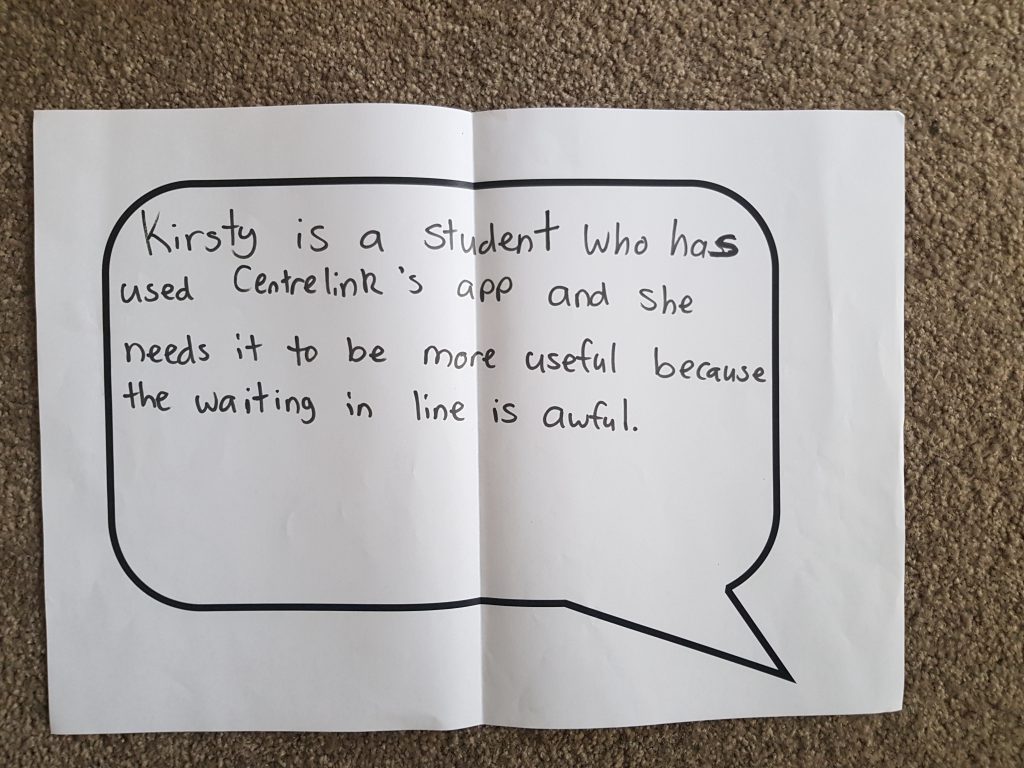 Kirsty is a student who has
used Centrelink's app and she
needs it to be more useful because
the waiting in line is awful.